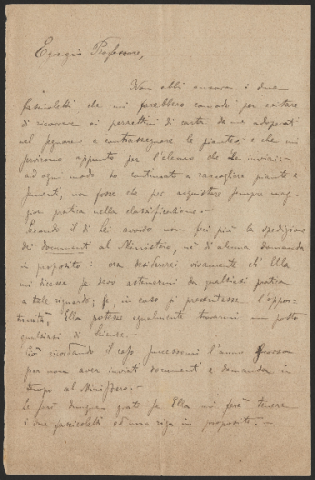 Egregio Professore,
Non ebbi ancora i due
fascicoletti che mi farebbero comodi per evitare
di ricorrere ai pezzettini di carta da me adoperati
nel segnare e contrassegnare le piante, e che mi
servirono appunto per l'elenco che Le inviai; -
ad ogni modo ho continuato a raccogliere piante e
sementi, non fosse che per acquistare sempre mag-
gior pratica nella classificazione. -
Secondo il di Lei avviso non feci più la spedizione
dei documenti al Ministero, nè di alcuna domanda
in proposito: ora desidererei vivamente ch'Ella
mi dicesse se devo astenermi da qualsiasi pratica
a tale riguardo; se, in caso si presentasse l'oppor-
tunità, Ella potesse egualmente trovarmi un posto
qualsiasi di
Ciò rivestendo il caso successomi l'anno scorso
per non aver inviati documenti e domanda in
tempo al Ministero. -
Le sarò dunque grato se Ella mi farà tenere
i due fascicoletti ed una riga in proposito. -